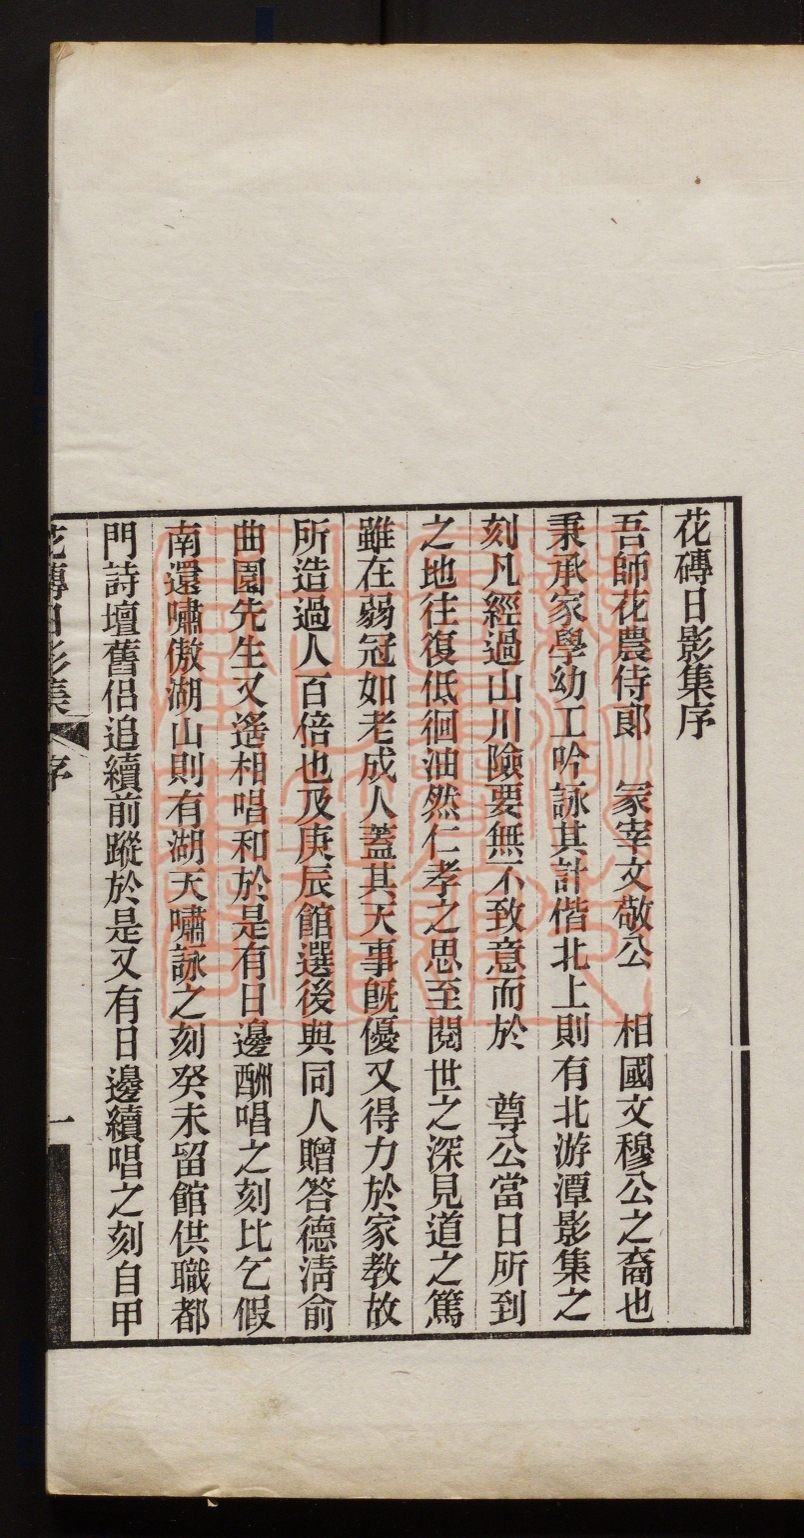 花磚日影集序
吾師花農侍郞　冡宰文敬公　相國文穆公之裔也
秉承家學幼工吟詠其計偕北上則有北游潭影集之
刻凡經過山川險要無不致意而於　尊公當日所到
之地往復低徊油然仁孝之思至閱世之深見道之篤
雖在弱冠如老成人蓋其天事旣優又得力於家教故
所造過人百倍也及庚辰館選後與同人贈答德淸俞
曲園先生又遙相唱和於是有日邊酬唱之刻比乞假
南還嘯傲湖山則有湖天嘯詠之刻癸未留館供職都
門詩壇舊侶追續前蹤於是又有日邊續唱之刻自甲
花磚日影集　序　一